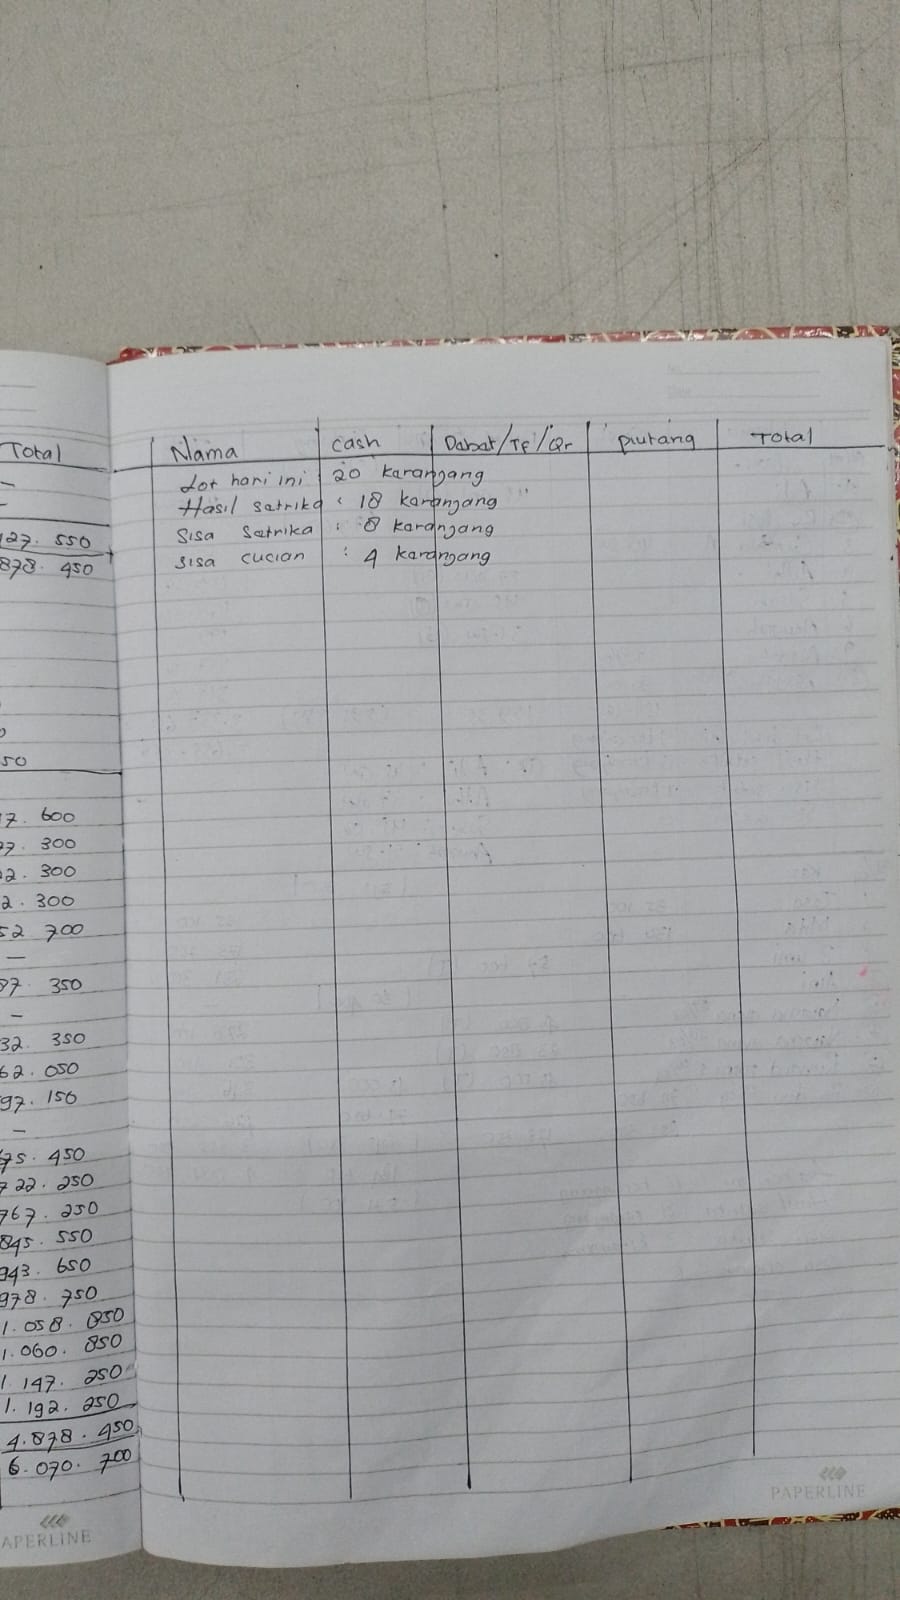 Total
—
—
127. 550
878. 450
50
17. 600
77. 300
22. 300
2. 300
52 700
—
87. 350
—
32. 350
62. 050
97. 150
—
75. 450
722. 250
767. 250
845. 550
943. 650
978. 750
1. 058. 850
1. 060. 850
1. 147. 250
1. 192. 250
4. 878. 450
6. 070. 700
APERLINE
Nama cash Dabat/TF/Qr piutang Total
Lot hari ini 20 karangang
Hasil satrika : 18 karangang
Sisa Satrika : 8 karangang
Sisa cucian : 4 karangang
PAPERLINE